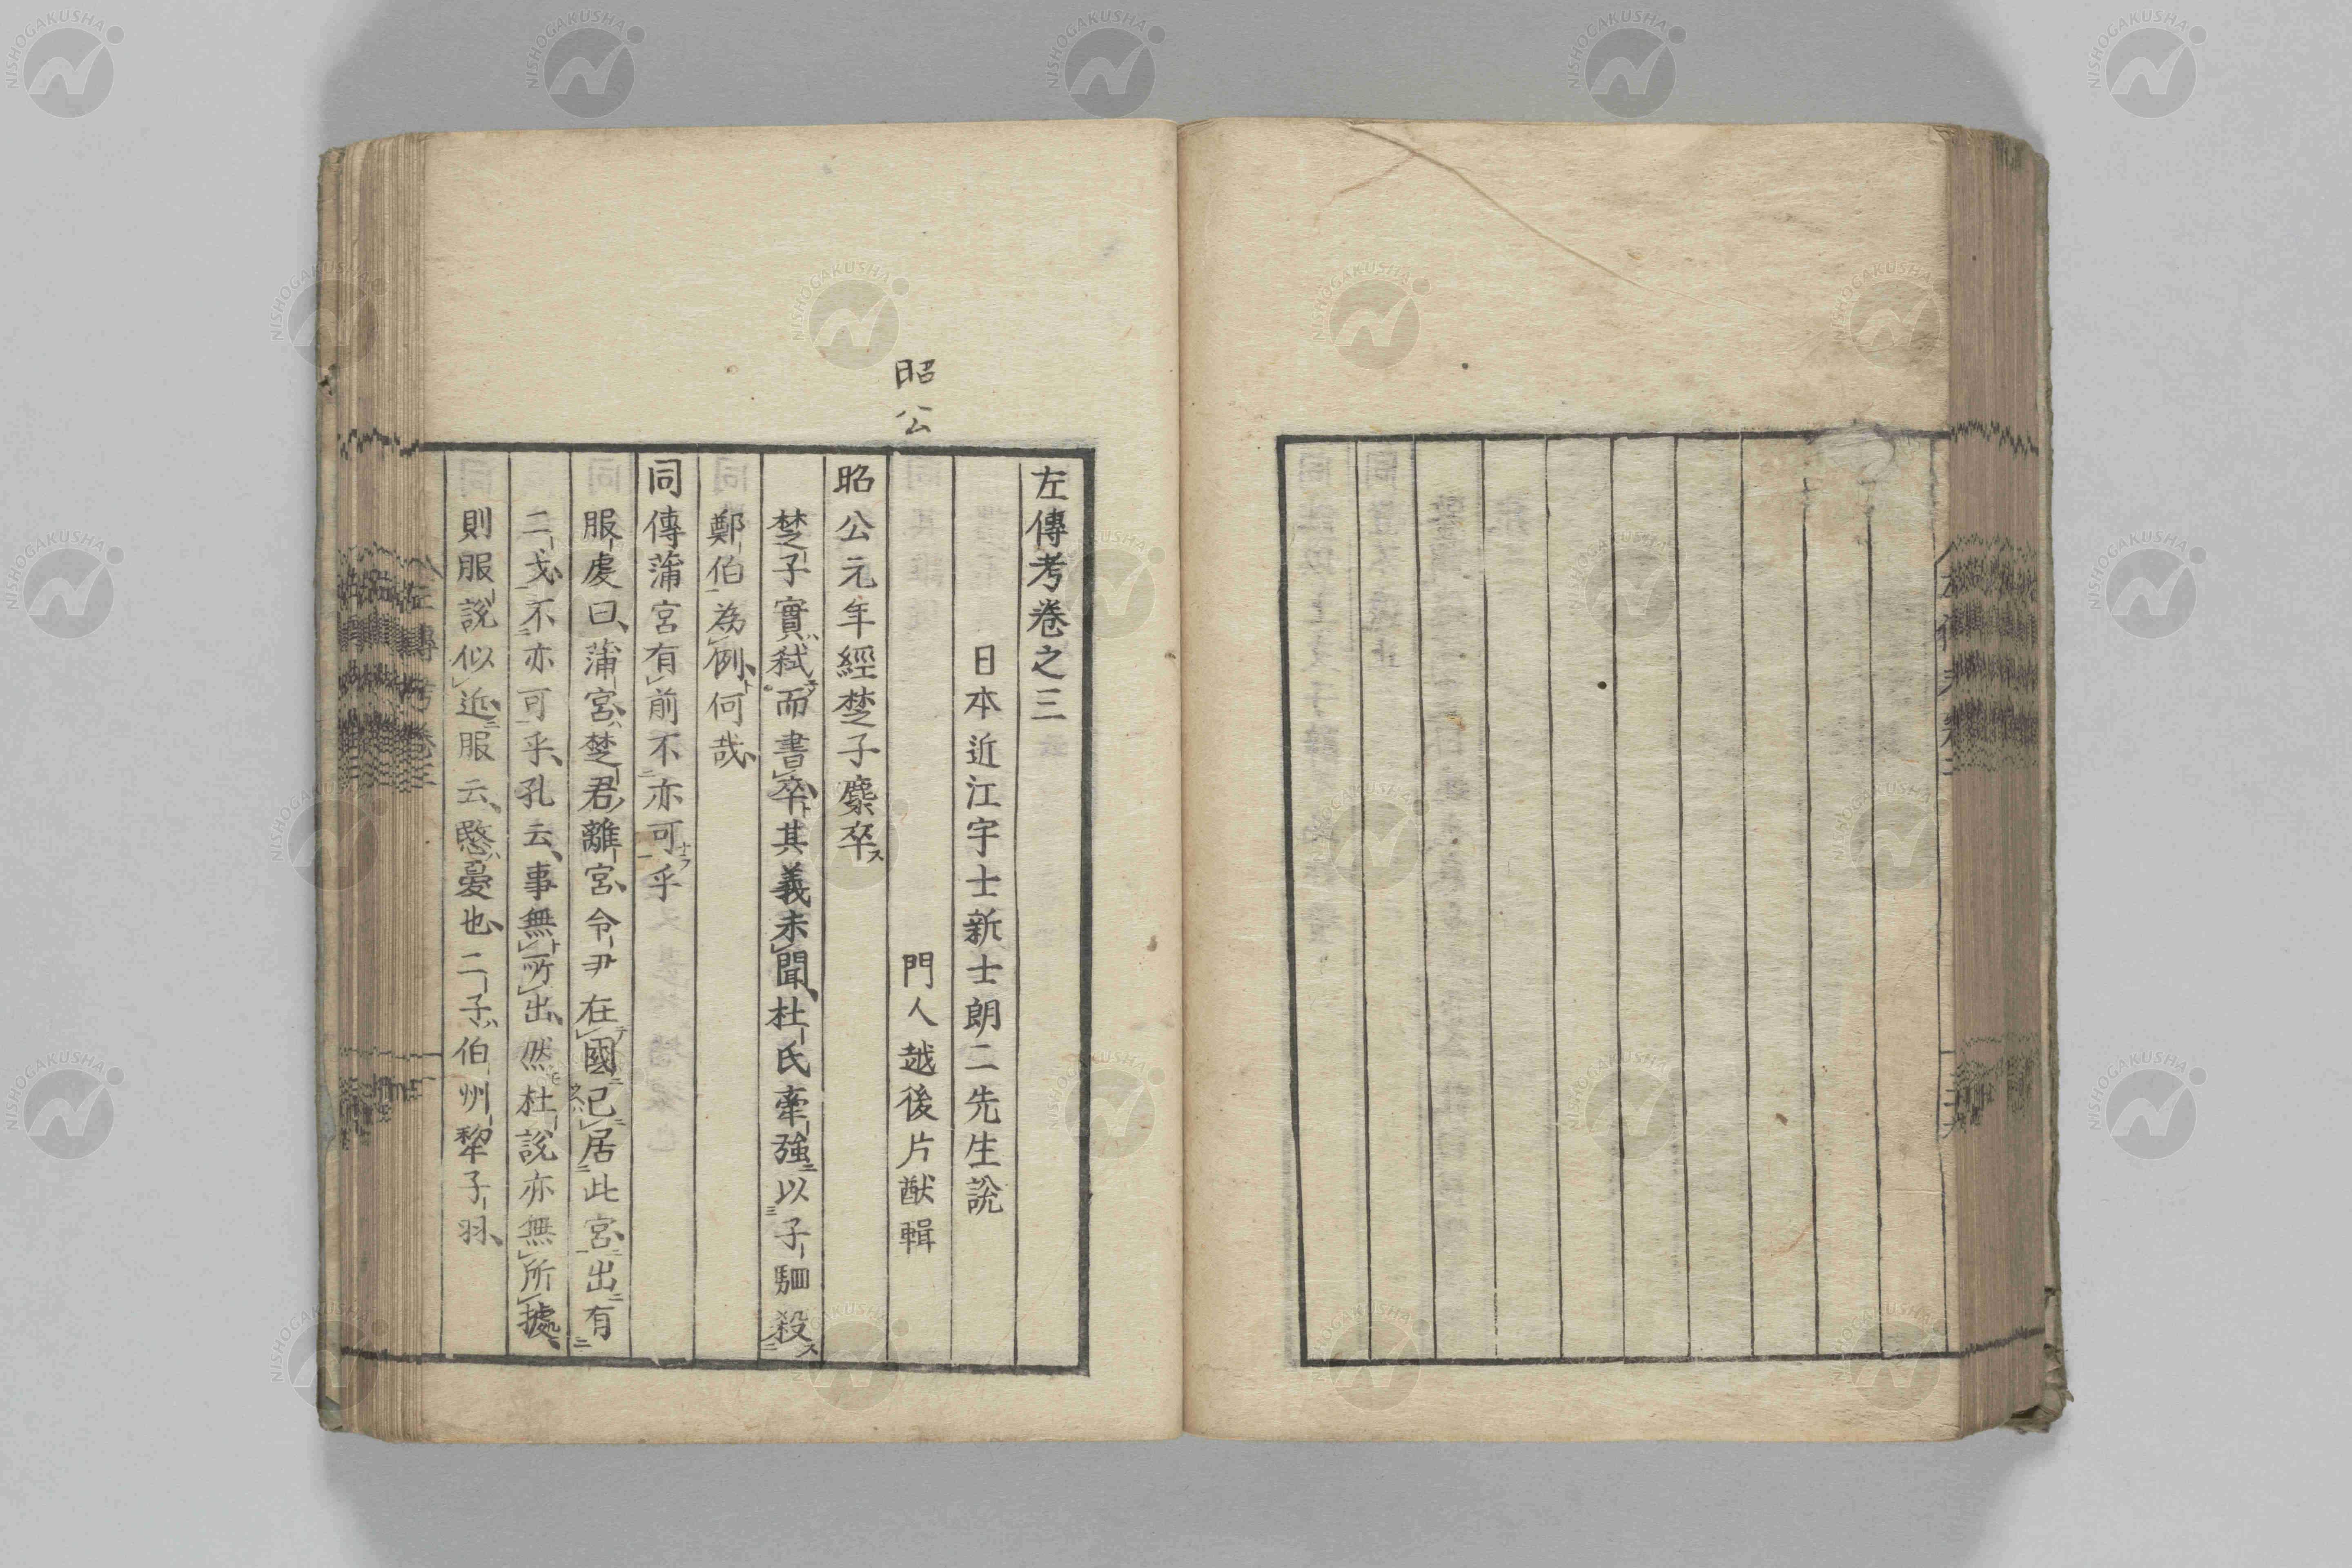 左傳考卷之三
日本近江宇士新士朗二先生說
門人越後片猷輯
昭公
昭公元年經楚子麇卒
楚子實弒而書卒其義未聞杜氏牽強以子駟殺
鄭伯為例何哉
同傳蒲宮有前不亦可乎
服虔曰蒲宮楚君離宮令尹在國已居此宮出有
二戈不亦可乎孔云事無所出然杜說亦無所據
則服說似近服云愍憂也二子伯州犂子羽
左傳考卷三
NISHOGAKUSHA